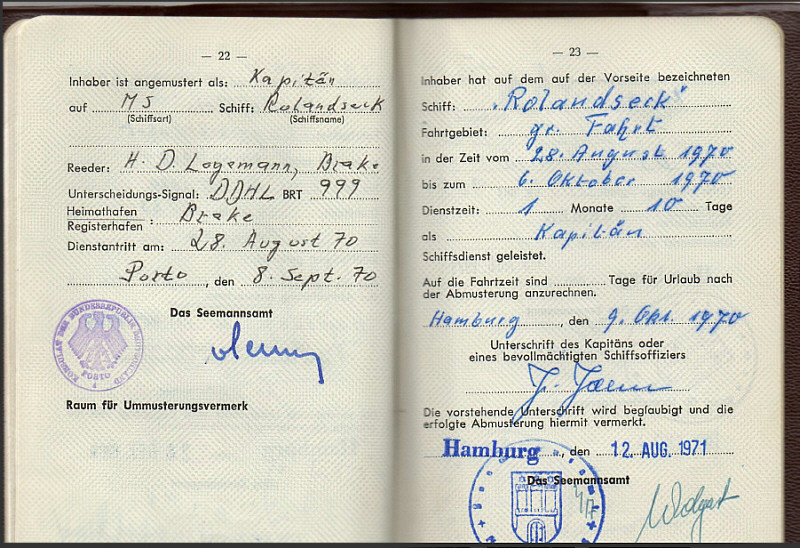 — 22 —
Inhaber ist angemustert als: Kapitän
auf MS Schiff: Rolandseck
(Schiffsart) (Schiffsname)
Reeder: H. D. Logemann, Brake
Unterscheidungs-Signal: DDHL BRT 999
Heimathafen
Registerhafen : Brake
Dienstantritt am: 28. August 70
Porto, den 8. Sept. 70
Das Seemannsamt
KONSULAT DER BUNDESREPUBLIK DEUTSCHLAND
PORTO
Raum für Ummusterungsvermerk
— 23 —
Inhaber hat auf dem auf der Vorseite bezeichneten
Schiff: "Rolandseck"
Fahrtgebiet: gr. Fahrt
in der Zeit vom 28. August 1970
bis zum 6. Oktober 1970
Dienstzeit: 1 Monate 10 Tage
als Kapitän
Schiffsdienst geleistet.
Auf die Fahrtzeit sind Tage für Urlaub nach
der Abmusterung anzurechnen.
Hamburg, den 9. Okt. 1970
Unterschrift des Kapitäns oder
eines bevollmächtigten Schiffsoffiziers
Die vorstehende Unterschrift wird beglaubigt und die
erfolgte Abmusterung hiermit vermerkt.
Hamburg, den 12. AUG. 1971
Das Seemannsamt